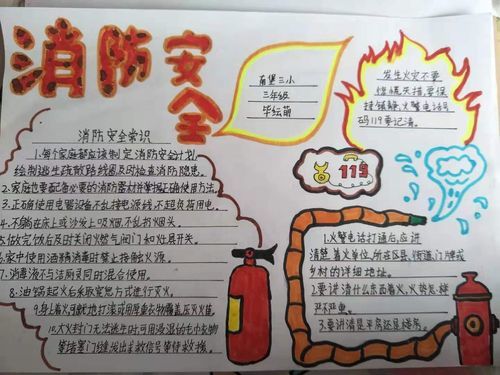 消防安全
南堡三小
三年级
毕绘萌
发生火灾不要
惊慌失措，要保
持镇静，火警电话号
码119要记清。
119
消防安全常识
1.每个家庭都应该制定消防安全计划，
绘制逃生疏散路线图及时检查消防隐患。
2.家庭也要配备必要的消防器材并掌握正确使用方法。
3.正确使用电器设备不乱接电源线，不超负荷用电。
4.不躺在床上或沙发上吸烟，不乱扔烟头。
5.做饭完饭后及时关闭燃气阀门和灶具开关。
6.家中使用酒精消毒时禁止接触火源。
7.消毒液不与洁厕灵同时混合使用。
8.油锅起火后采取窒息方式进行灭火。
9.身上着火可就地打滚或用厚重衣物覆盖压灭火苗
10.大火封门无法逃生时可用浸湿的毛巾衣物
等堵塞门缝发出求救信号等待救援。
1.火警电话打通后，应讲
清楚着火单位，所在区县、街道、门牌或
乡村的详细地址。
2.要讲清什么东西着火，火势怎样
3.要讲清是平房还是楼房。